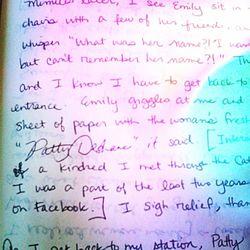 minutes later, I see Emily sit in
chairs with a few of her friend
whisper "What was her name?! I
but can't remember her name?!" Th
and I know I have to get back to
entrance. Emily giggles at me and
sheet of paper with the womans fresh
"Patty it said. [Inter
a kindred I met through the Cat
I was a part of the last two years
on Facebook.] I sigh relief, than
I get back to my station, Patty